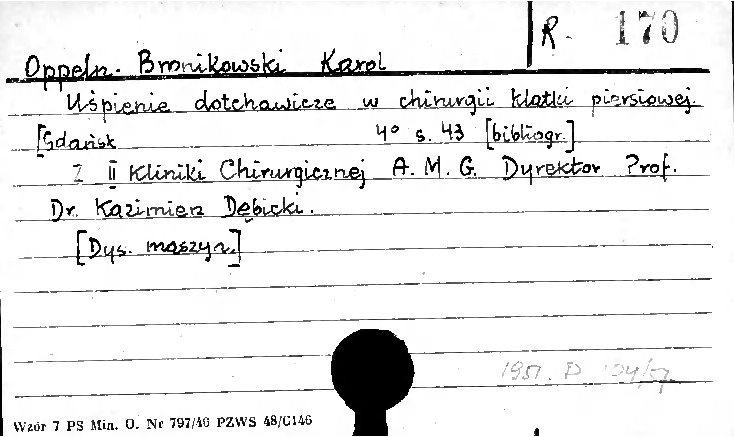 R. 170
Oppeln-Bronikowski Karol
Uśpienie dotchawicze w chirurgii klatki piersiowej.
[Gdańsk 4° s. 43 [bibliogr.]
Z II Kliniki Chirurgicznej A. M. G. Dyrektor Prof.
Dr. Kazimierz Dębicki.
[Dys. maszyn.]
1951. D
Wzór 7 PS Min. O. Nr 797/46 PZWS 48/G146